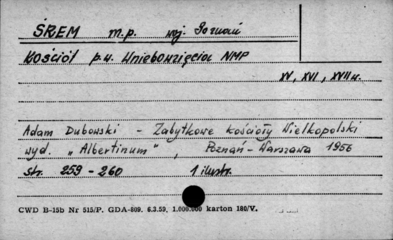 ŚREM m.p. woj. Poznań
Kościół p.w. Wniebowzięcia NMP
XV, XVI, XVII w.
Adam Dubowski - Zabytkowe kościoły Wielkopolski
wyd. „Albertinum", Poznań - Warszawa 1956
str. 259 - 260 1 ilustr.
CWD B-15b Nr 515/P. GDA-809. 6.2.59, 1.000.000 karton 180/V.